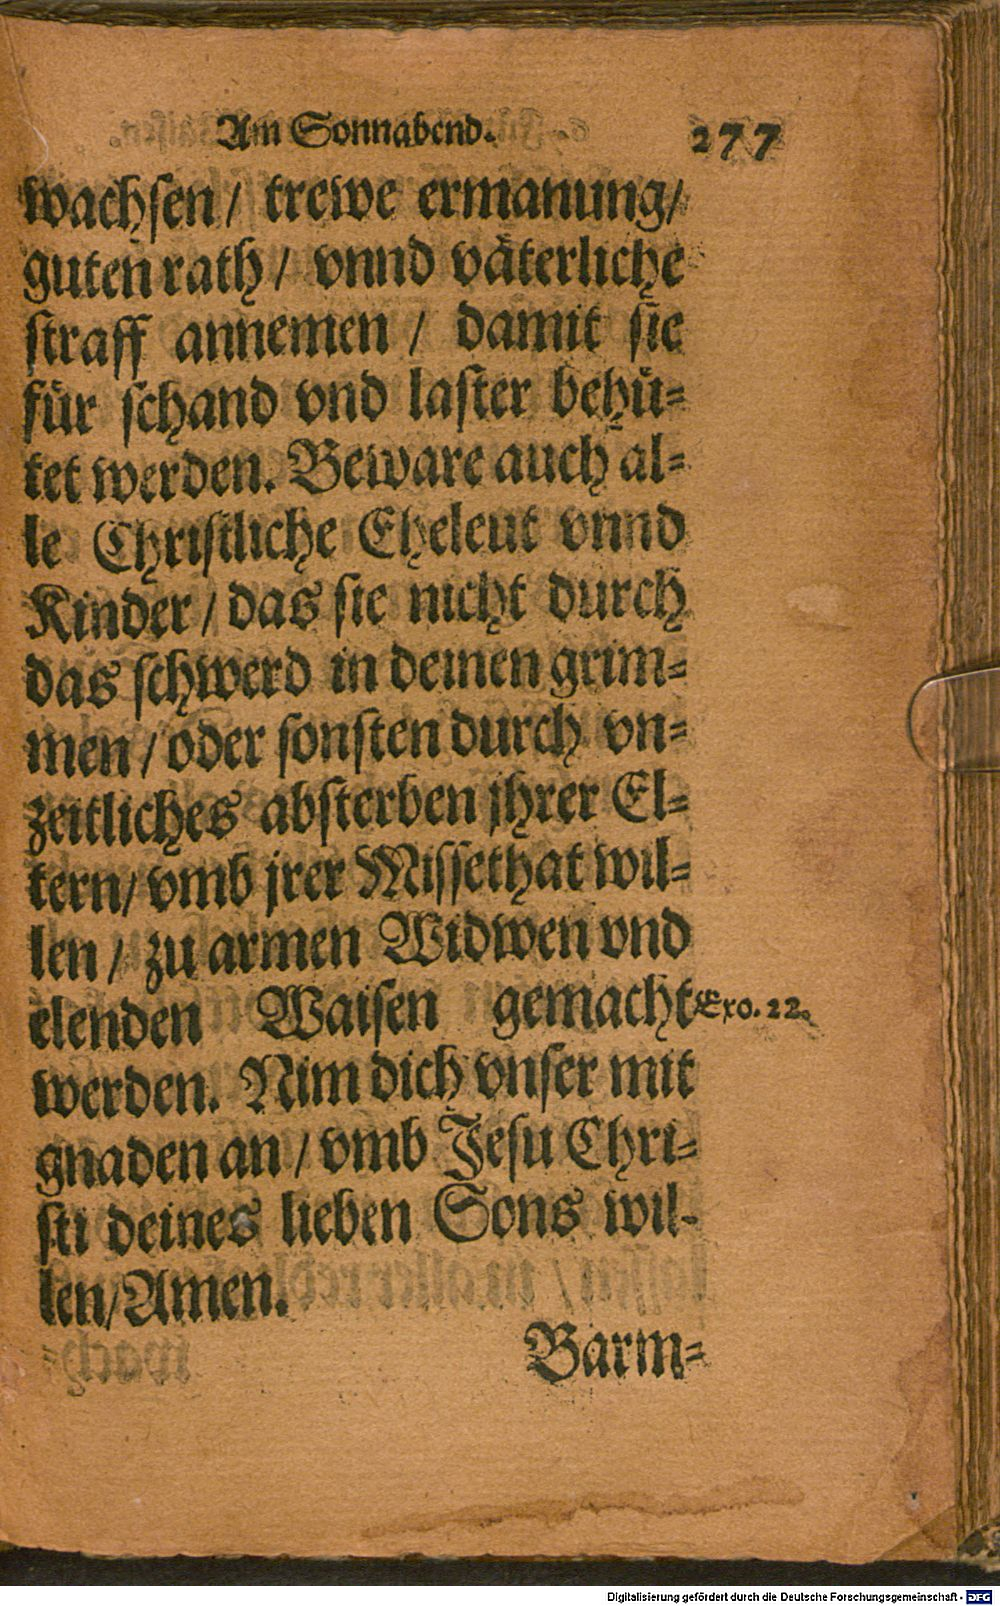 Am Sonnabend. 277
wachſen / trewe ermanung/
guten rath / vnnd väterliche
ſtraff annemen / damit ſie
für ſchand vnd laſter behü⸗
tet werden. Beware auch al⸗
le Chriſtliche Eheleut vnnd
Kinder / das ſie nicht durch
das ſchwerd in deinen grim⸗
men / oder ſonſten durch vn⸗
zeitliches abſterben jhrer El⸗
tern/ vmb jrer Miſſethat wil⸗
len / zu armen Widwen vnd
elenden Waiſen gemacht Exo. 22.
werden. Nim dich vnſer mit
gnaden an / vmb Jeſu Chri⸗
ſti deines lieben Sons wil⸗
len/Amen.
Barm⸗
Digitalisierung gefördert durch die Deutsche Forschungsgemeinschaft - DFG